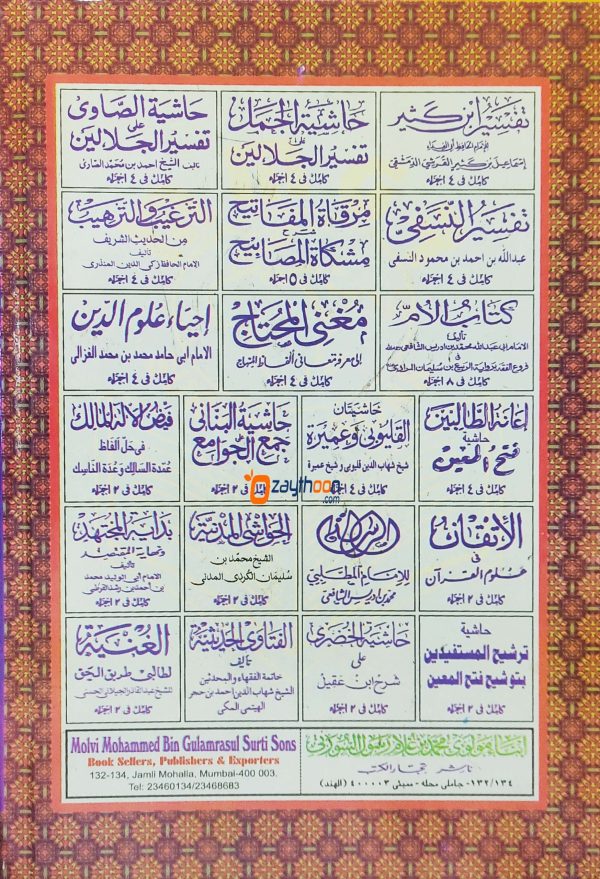 تفسير ابن كثير
للإمام الحافظ أبو الفداء
إسماعيل بن كثير القرشي الدمشقي
كامل فى ٤ اجزاء
حاشية الجمل
على
تفسير الجلالين
كامل فى ٤ اجزاء
حاشية الصاوى
على
تفسير الجلالين
تاليف الشيخ احمد بن محمد الصاوى
كامل فى ٤ اجزاء
تفسير النسفى
عبدالله بن احمد بن محمود النسفى
كامل فى ٤ اجزاء
مرقاة المفاتيح
شرح
مشكاة المصابيح
كامل فى ٥ اجزاء
الترغيب والترهيب
من الحديث الشريف
تأليف
الامام الحافظ زكى الدين المنذرى
كامل فى ٤ اجزاء
كتاب الأم
تأليف
الامام ابى عبدالله محمد بن ادريس الشافعى
فى
فروع الفقه برواية الربيع بن سليمان المرادى
كامل فى ٨ اجزاء
مغنى المحتاج
إلى معرفة معانى ألفاظ المنهاج
كامل فى ٤ اجزاء
إحياء علوم الدين
الامام ابى حامد محمد بن محمد الغزالى
كامل فى ٤ اجزاء
إعانة الطالبين
حاشية
فتح المعين
كامل فى ٤ اجزاء
حاشيتان
القليوبى وعميرة
شيخ شهاب الدين قليوبى و شيخ عميرة
كامل فى ٤ اجزاء
حاشية البنانى
على
جمع الجوامع
كامل فى ٢ اجزاء
فيض الإله المالك
فى حل ألفاظ
عمدة السالك وعدة الناسك
كامل فى ٢ اجزاء
ozaythoon
.com
الإتقان
فى
علوم القرآن
كامل فى ٢ اجزاء
الرسالة
للإمام المطلبى
محمد بن ادريس الشافعى
الحواشى المدنية
الشيخ محمد بن
سليمان الكردى المدنى
بداية المجتهد
ونهاية المقتصد
تأليف
الامام ابى الوليد محمد
بن احمد بن رشد القرطبى
كامل فى ٢ اجزاء
حاشية
ترشيح المستفيدين
بتوشيح فتح المعين
كامل فى ٢ اجزاء
حاشية الخضرى
على
شرح ابن عقيل
كامل فى ٢ اجزاء
الفتاوى الحديثية
تأليف
خاتمة الفقهاء والمحدثين
الشيخ شهاب الدين احمد بن حجر
الهيتمى المكى
الغنية
لطالبى طريق الحق
للشيخ عبدالقادر الجيلانى الحسنى
كامل فى ٢ اجزاء
ابناء مولوى محمد بن غلام رسول السورتى
ناشر تجار الكتب
١٣٢/١٣٤- جاملى محله - ممبئى ٤٠٠٠٠٣ (الهند)
Molvi Mohammed Bin Gulamrasul Surti Sons
Book Sellers, Publishers & Exporters
132-134, Jamli Mohalla, Mumbai-400 003.
Tel: 23460134/23468683